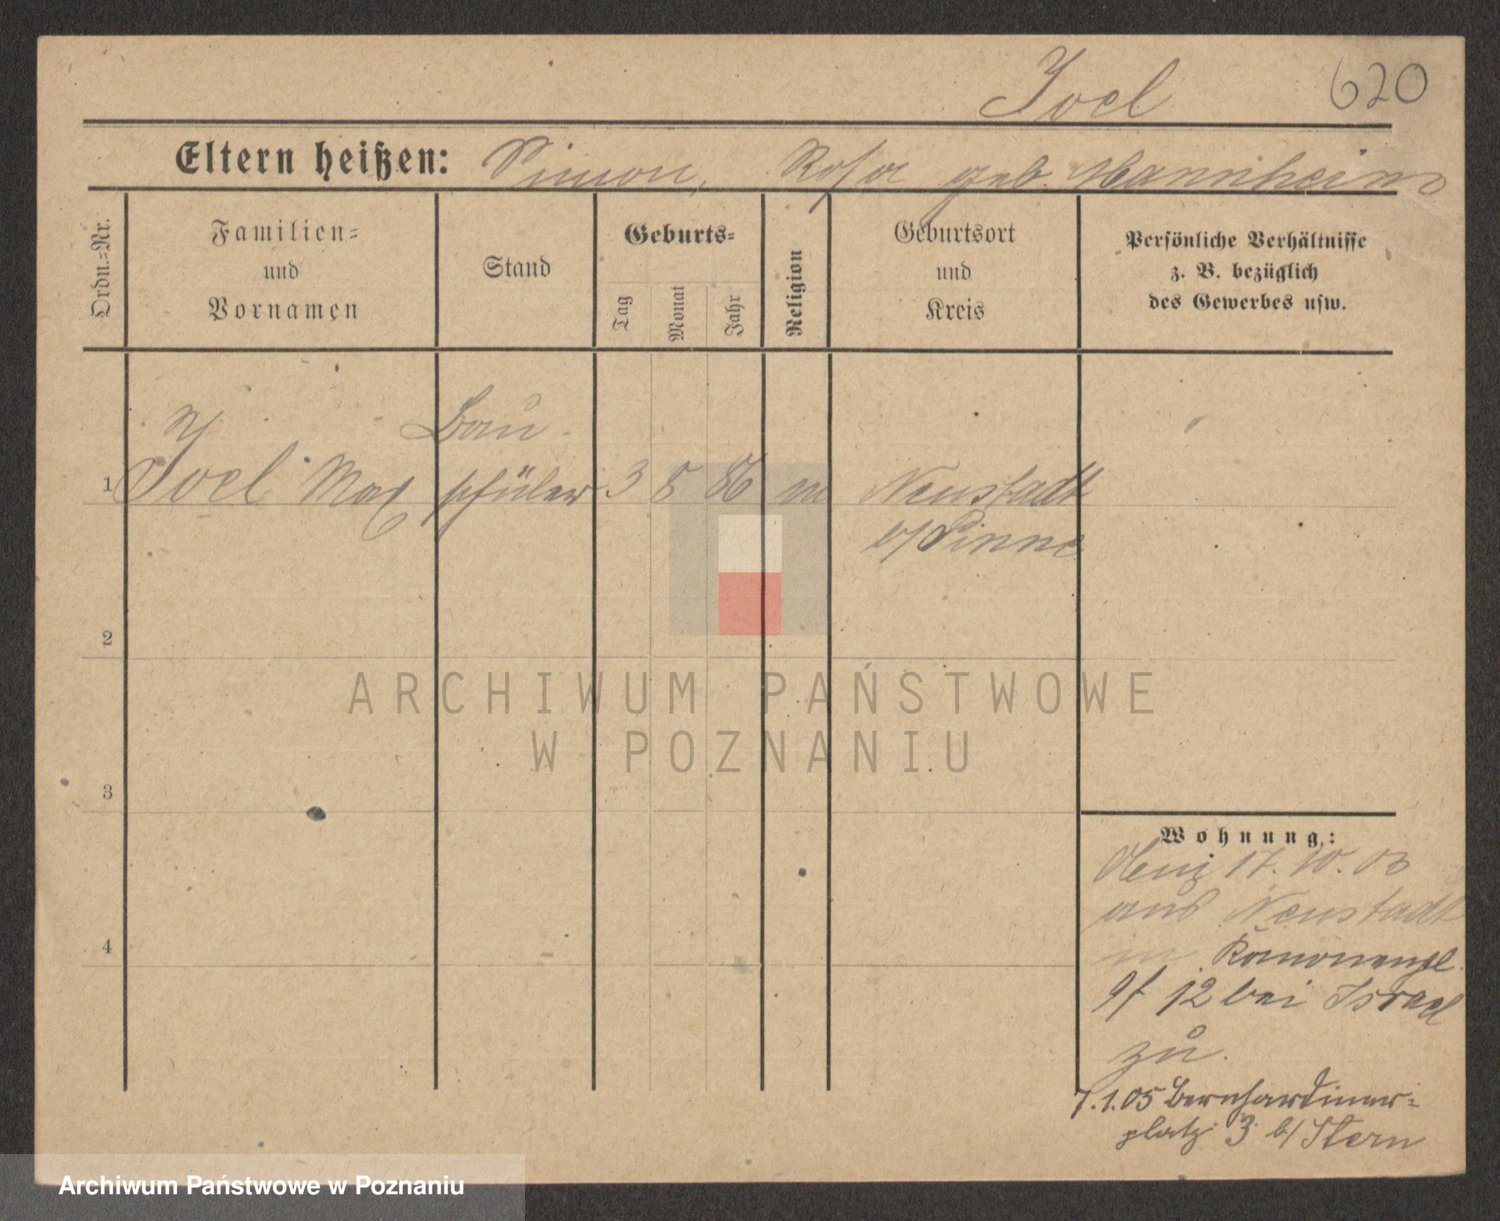 Joel 620
Eltern heißen: Simon, Rosa geb. Mannheim
Ordn.-Nr.
Familien-
und
Vornamen
Stand
Geburts-
Tag
Monat
Jahr
Religion
Geburtsort
und
Kreis
Persönliche Verhältnisse
z. B. bezüglich
des Gewerbes usw.
Bau
1 Joel Max schüler 3 8 86 m Neustadt
b/Pinne
2
ARCHIWUM PAŃSTWOWE
W POZNANIU
3
Wohnung:
17.10.03
aus Neustadt
in Kanonenpl.
12 bei Israel
zu.
4
7.1.05 Bernhardiner-
platz 3 b/Stern
Archiwum Państwowe w Poznaniu